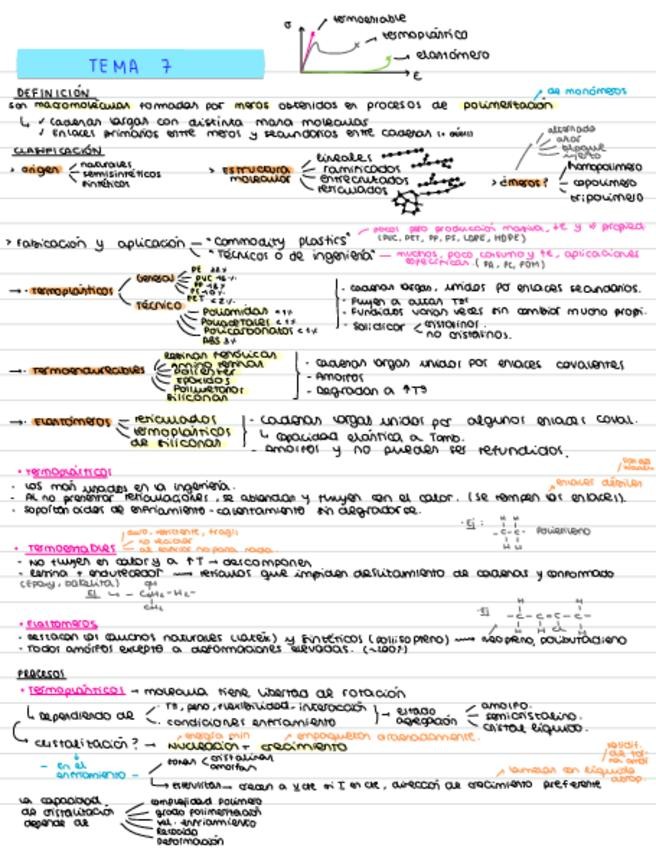 σ
termoestable
termoplástico
elastómero
ε
TEMA 7
DEFINICIÓN
de monómeros
son macromoléculas formadas por meros obtenidos en procesos de polimerización
↳ ✓ cadenas largas con distinta masa molecular
✓ Enlaces primarios entre meros y secundarios entre cadenas
CLASIFICACIÓN
> origen
naturales
semisintéticos
sintéticos
> ESTRUCTURA molecular
lineales
ramificados
entrecruzados
reticulados
> ¿meros?
alternado
azar
bloque
injerto
homopolímero
copolímero
tripolímero
> Fabricación y aplicación — "Commodity plastics"
(PVC, PET, PP, PS, LDPE, HDPE)
"Técnicos o de ingeniería" — muchos, poco consumo y ↑€, aplicaciones específicas. (PA, PC, POM)
→ TERMOPLÁSTICOS
General
PE
PVC
PP
PET
Técnico
Poliamidas <1%
Poliacetales <1%
Policarbonatos <1%
ABS 3%
- cadenas largas, unidos por enlaces secundarios.
- Fluyen a altas Tas
- Fundidos varias veces sin cambiar mucho propi.
- Solidificar
cristalinos.
no cristalinos.
→ Termoendurecibles
Resinas fenólicas
Amino resinas
Poliéster
Epóxidos
Poliuretanos
Siliconas
- cadenas largas unidos por enlaces covalentes
- Amorfos
- Degradan a ↑Ta
→ Elastómeros
reticulados
termoplásticos
de siliconas
- cadenas largas unidos por algunos enlaces coval.
↳ capacidad elástica a Tamb.
- amorfos y no pueden ser refundidos.
• Termoplásticos
- Los más usados en la ingeniería.
enlaces débiles
- Al no presentar reticulaciones, se ablandan y fluyen con el calor. (se rompen los enlaces).
- soportan ciclos de enfriamiento - calentamiento sin degradarse.
· Ej:
H H
-C-C-
H H
Polietileno
• TERMOESTABLES
duro, resistente, frágil
no reciclar
- No fluyen en calor y a ↑T → descomponen
- Resina + endurecedor → retículos que impiden deslizamiento de cadenas y conformado
(epoxy, bakelita)
OH
Ej
• Elastómeros
- Destacan los cauchos naturales (látex) y sintéticos (poliisopreno) → neopreno, polibutadieno
- Todos amorfos excepto a deformaciones elevadas. (~200%)
Ej
PROCESOS
• Termoplásticos → molécula tiene libertad de rotación
↳ Dependiendo de
Ta, peso, flexibilidad, interacción
condiciones enfriamiento
→ estado agregación
amorfo.
semicristalino.
cristal líquido.
energía min
empaqueten ordenadamente.
↳ cristalización? → Nucleación + crecimiento
- en el enfriamiento -
zonas
cristalinas
amorfas
↳ esferulitas → crecen a v cte si T en cte, dirección de crecimiento preferente
La capacidad de cristalización depende de
complejidad polímero
grado polimerización
vel. enfriamiento
Recocido
Deformación